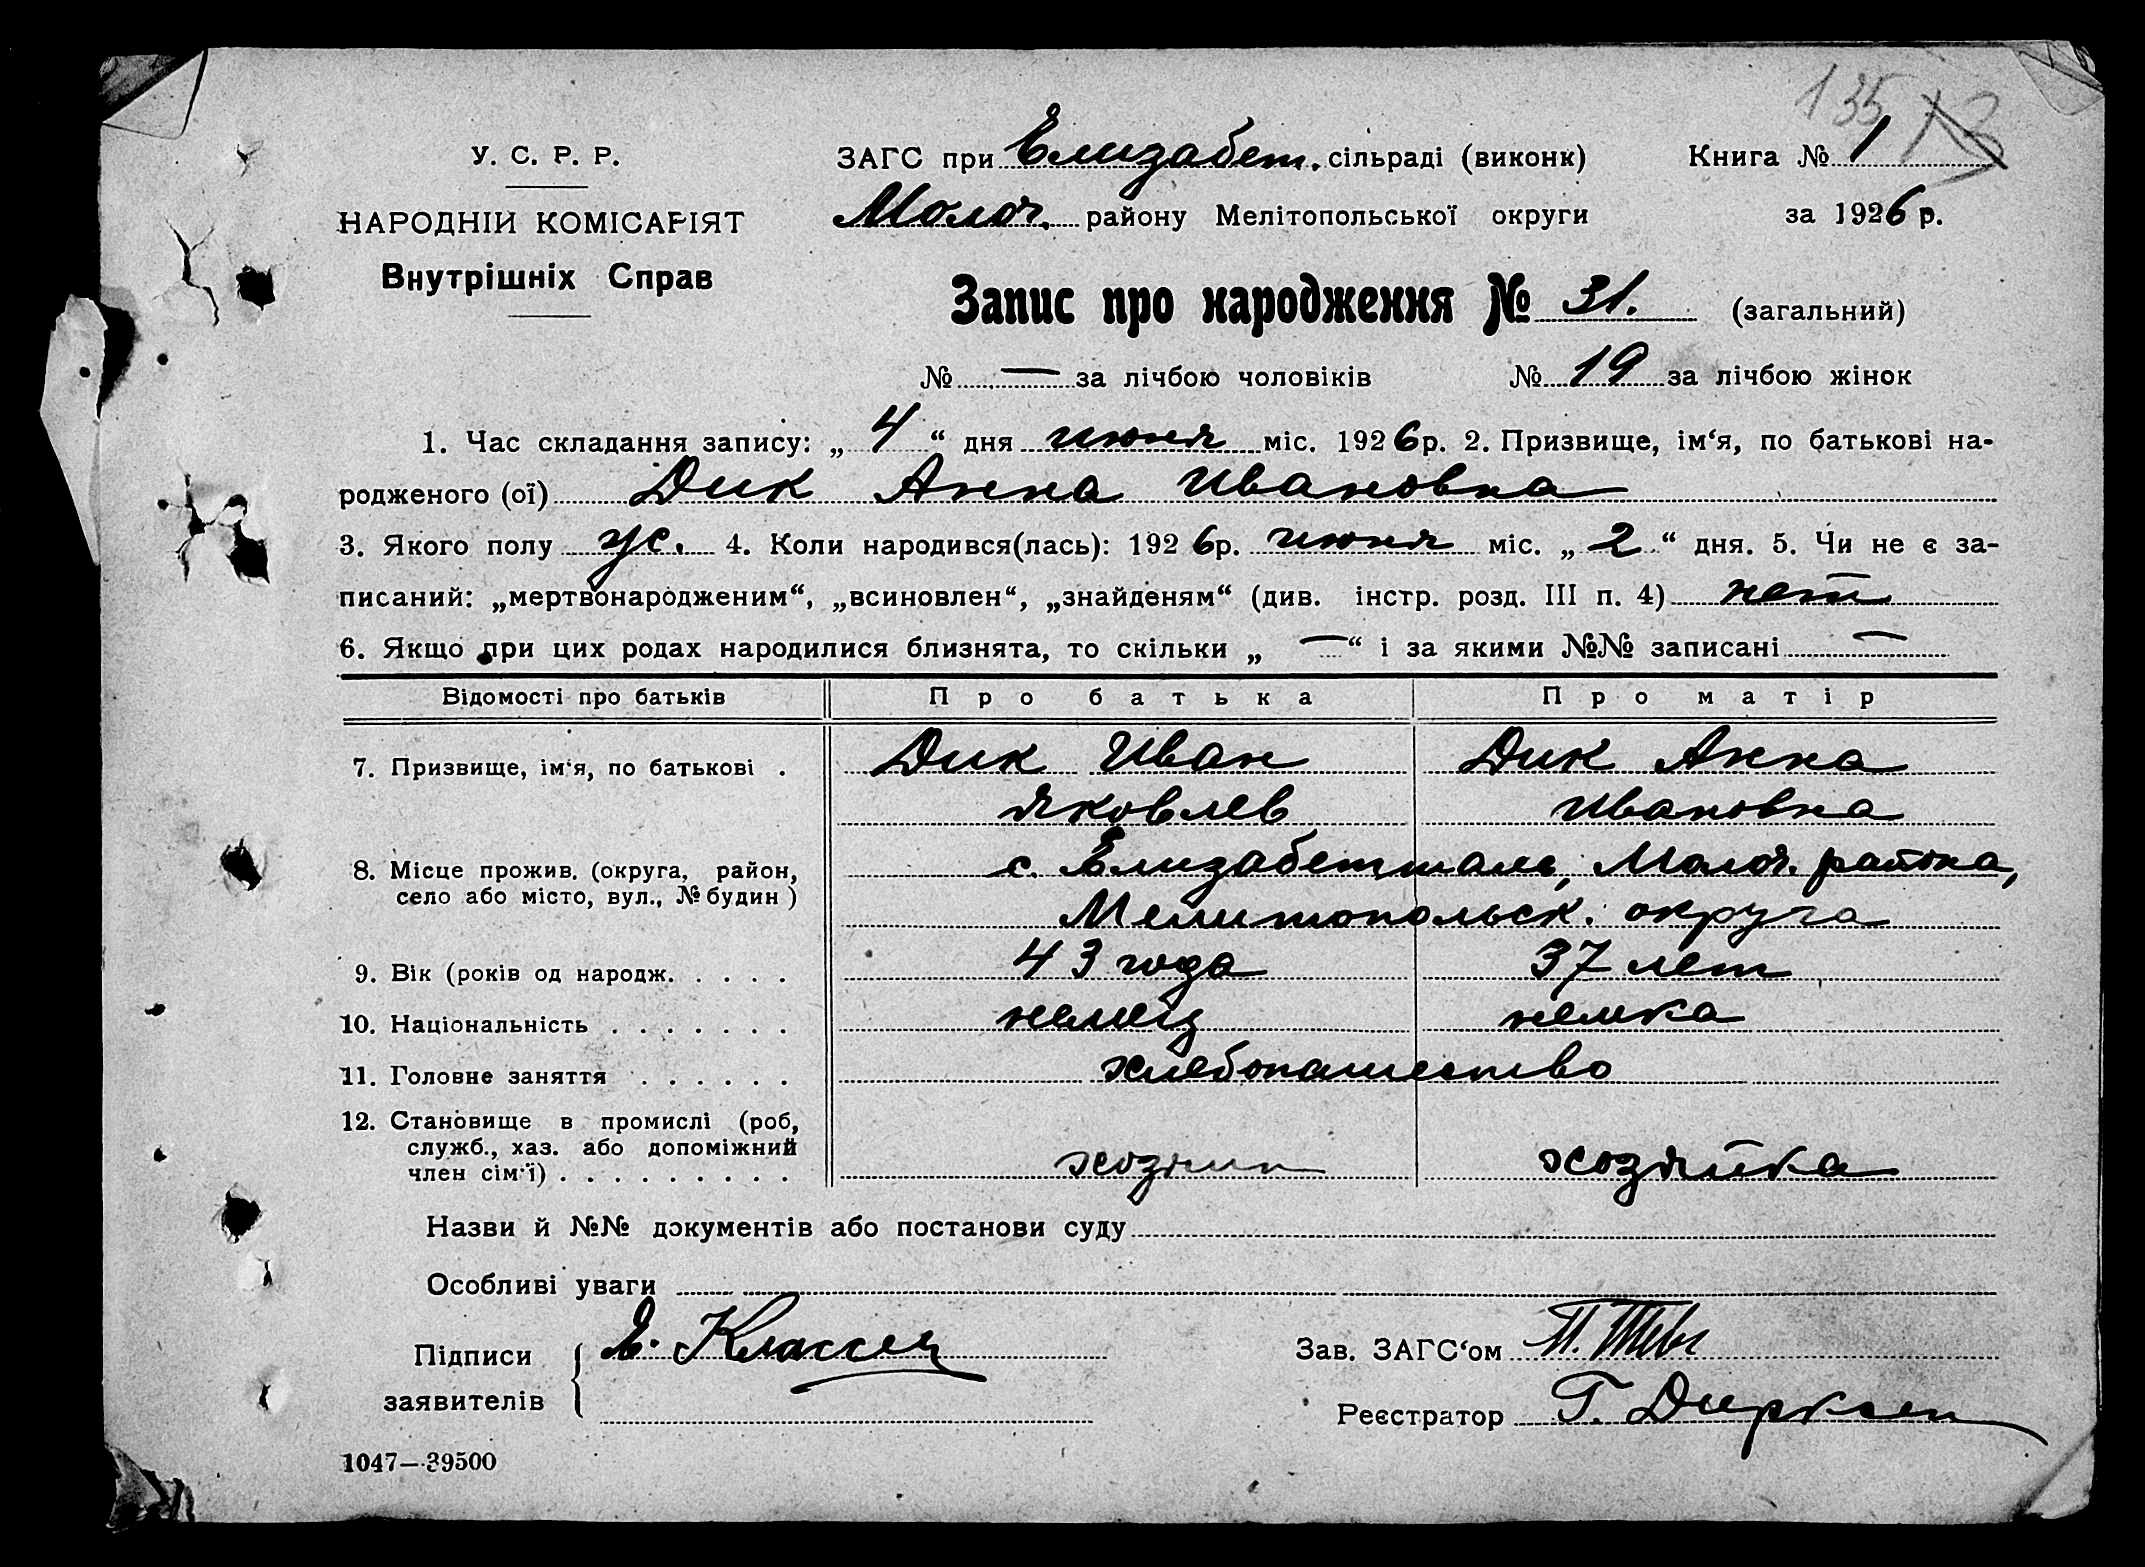 135
У. С. Р. Р.
НАРОДНІЙ КОМІСАРІЯТ
Внутрішніх Справ
ЗАГС при Елизабет. сільраді (виконк)
Книга № 1
Молоч. району Мелітопольської округи
за 1926 р.
Запис про народження № 31. (загальний)
№ — за лічбою чоловіків № 19 за лічбою жінок
1. Час складання запису: „ 4 “ дня июня міс. 1926 р. 2. Призвище, ім‘я, по батькові на-
родженого (ої) Дик Анна Ивановна
3. Якого полу ж. 4. Коли народився(лась): 1926 р. июня міс. „ 2 “ дня. 5. Чи не є за-
писаний: „мертвонародженим“, „всиновлен“, „знайденям“ (див. інстр. розд. III п. 4) нет
6. Якщо при цих родах народилися близнята, то скільки „ — “ і за якими №№ записані —
Відомості про батьків Про батька Про матір
7. Призвище, ім‘я, по батькові . Дик Иван Дик Анна
Яковлев Ивановна
8. Місце прожив. (округа, район, с. Елизабетталь, Молоч. района,
село або місто, вул., № будин ) Мелитопольск. округа
9. Вік (років од народж. . . . . 43 года 37 лет
10. Національність . . . . . . . немец немка
11. Головне заняття . . . . . . хлебопашество
12. Становище в промислі (роб,
служб., хаз. або допоміжний
член сім‘ї) . . . . . . . . . хозяин хозяйка
Назви й №№ документів або постанови суду
Особливі уваги
Підписи Е. Классен
заявителів
Зав. ЗАГС‘ом
Реєстратор Г. Дирксен
1047—39500